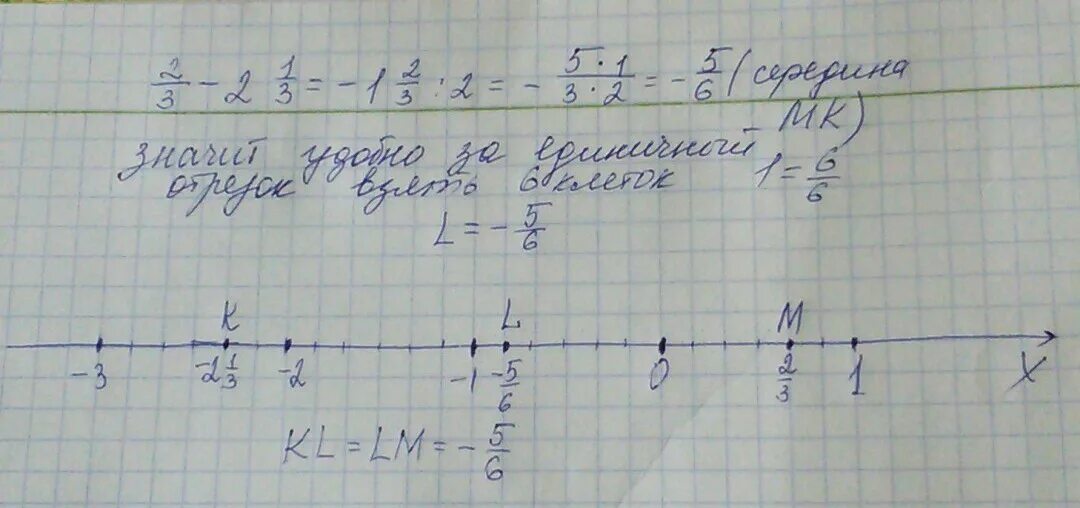 2/3 - 2 1/3 = -1 2/3 : 2 = - 5·1/3·2 = - 5/6 (середина
МК)
значит удобно за единичный
отрезок взять 6 клеток 1 = 6/6
L = - 5/6
K L M
-3 -2 1/3 -2 -1 -5/6 0 2/3 1 X
KL = LM = - 5/6